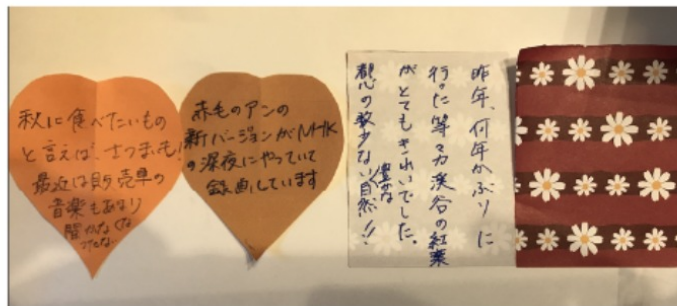 秋に食べたいもの
と言えば、さつまいも!
最近は販売車の
音楽もあまり
聞かなくな
ってきな
赤毛のアンの
新バージョンがNHK
の深夜にやっていて
録画しています
昨年、何年かぶりに
行った等々力渓谷の紅葉
がとてもきれいでした。
都心の数少ない豊かな自然!!